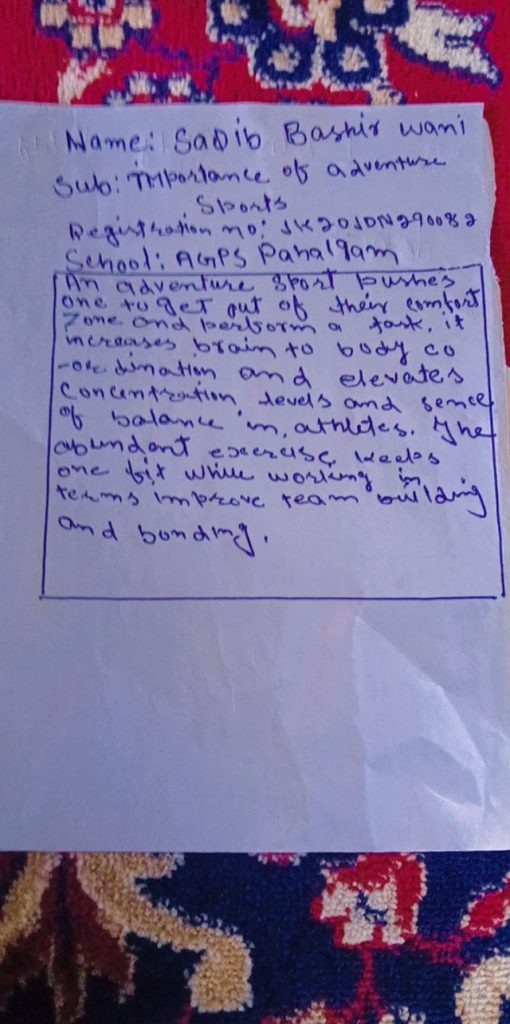 Name: Saqib Bashir wani
Sub: Importance of adventure
Sports
Registration no: JK20JDN290082
School: AGPS Pahalgam
An adventure sport pushes
one to get out of their comfort
zone and perform a task. it
increases brain to body co
-ordination and elevates
concentration, levels and sence
of balance in athletes. The
abundant exercise keeps
one fit while working in
terms improve team building
and bonding.